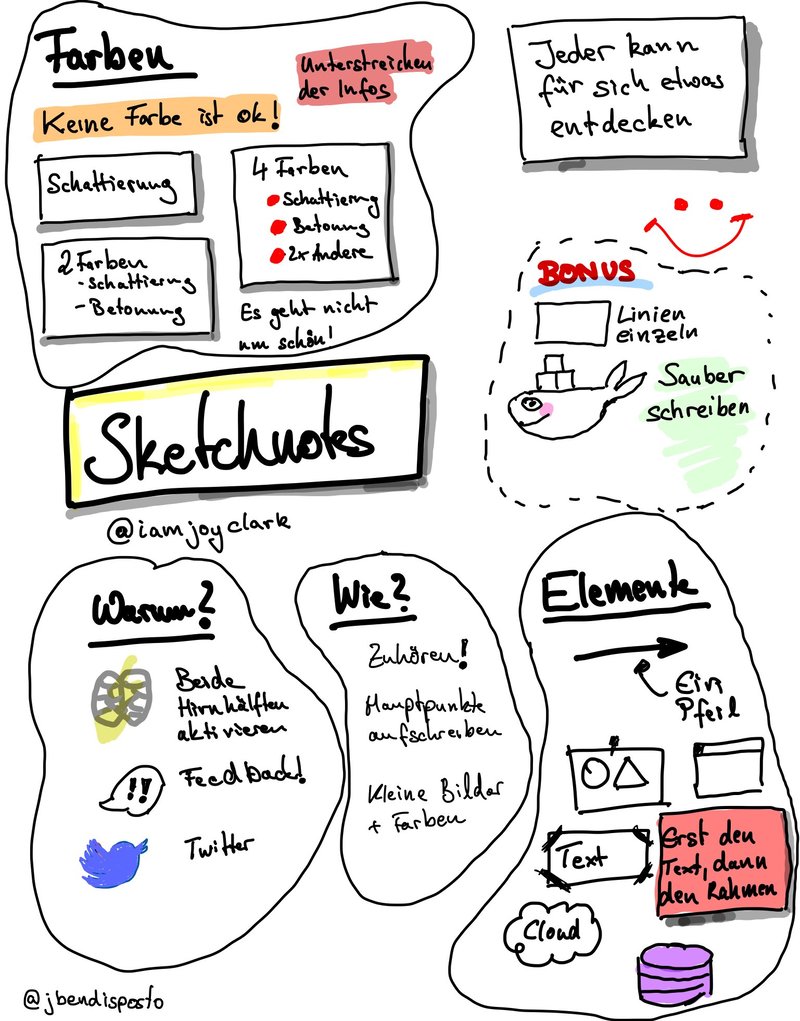 Farben
Unterstreichen
der Infos
Keine Farbe ist ok!
Schattierung
4 Farben
Schattierung
Betonung
2x Andere
2 Farben
- Schattierung
- Betonung
Es geht nicht
um schön!
Jeder kann
für sich etwas
entdecken
BONUS
Linien
einzeln
Sauber
schreiben
Sketchnotes
@iamjoyclark
Warum?
Beide
Hirnhälften
aktivieren
!!
Feedback!
Twitter
Wie?
Zuhören!
Hauptpunkte
aufschreiben
Kleine Bilder
+ Farben
Elemente
Ein
Pfeil
Text
Erst den
Text, dann
den Rahmen
Cloud
@jbendisposto